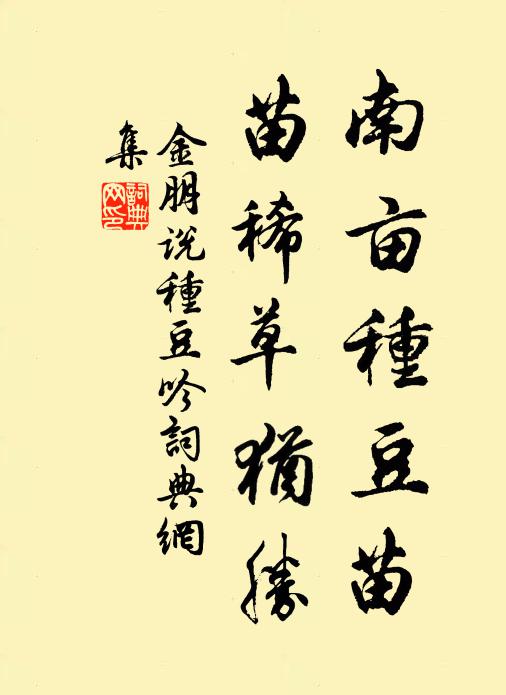 南亩種豆苗
苗稀草猶勝
金朋说種豆吟詞典網
集
詞典网印